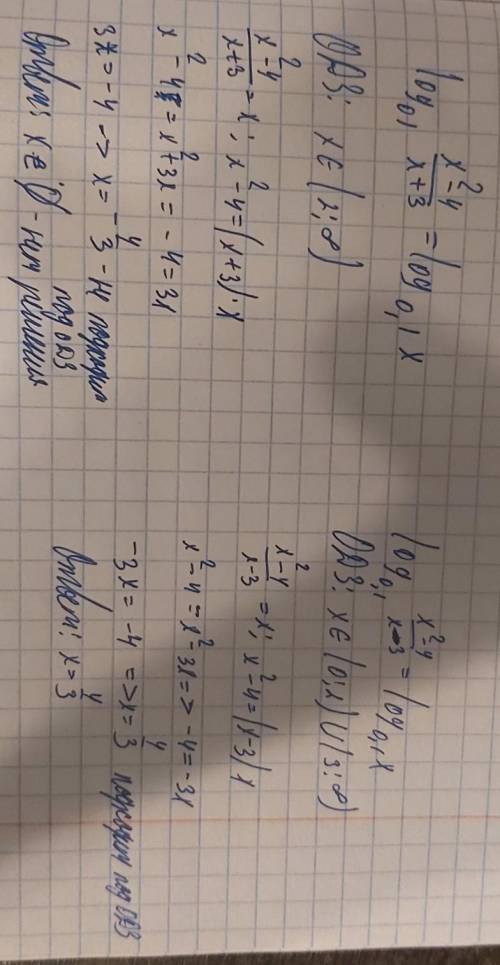 log₀,₁ (x²-4)/(x+3) = log₀,₁ x
ОДЗ: x ∈ (2; ∞)
(x²-4)/(x+3) = x; x²-4 = (x+3)·x
x²-4 = x²+3x = -4 = 3x
3x = -4 -> x = -4/3 - не подходит
под ОДЗ
Ответ: x ∈ ∅ - нет решения
log₀,₁ (x²-4)/(x-3) = log₀,₁ x
ОДЗ: x ∈ (0; 2) ∪ (3; ∞)
(x²-4)/(x-3) = x; x²-4 = (x-3)x
x²-4 = x²-3x => -4 = -3x
-3x = -4 => x = 4/3 подходит под ОДЗ
Ответ: x = 4/3